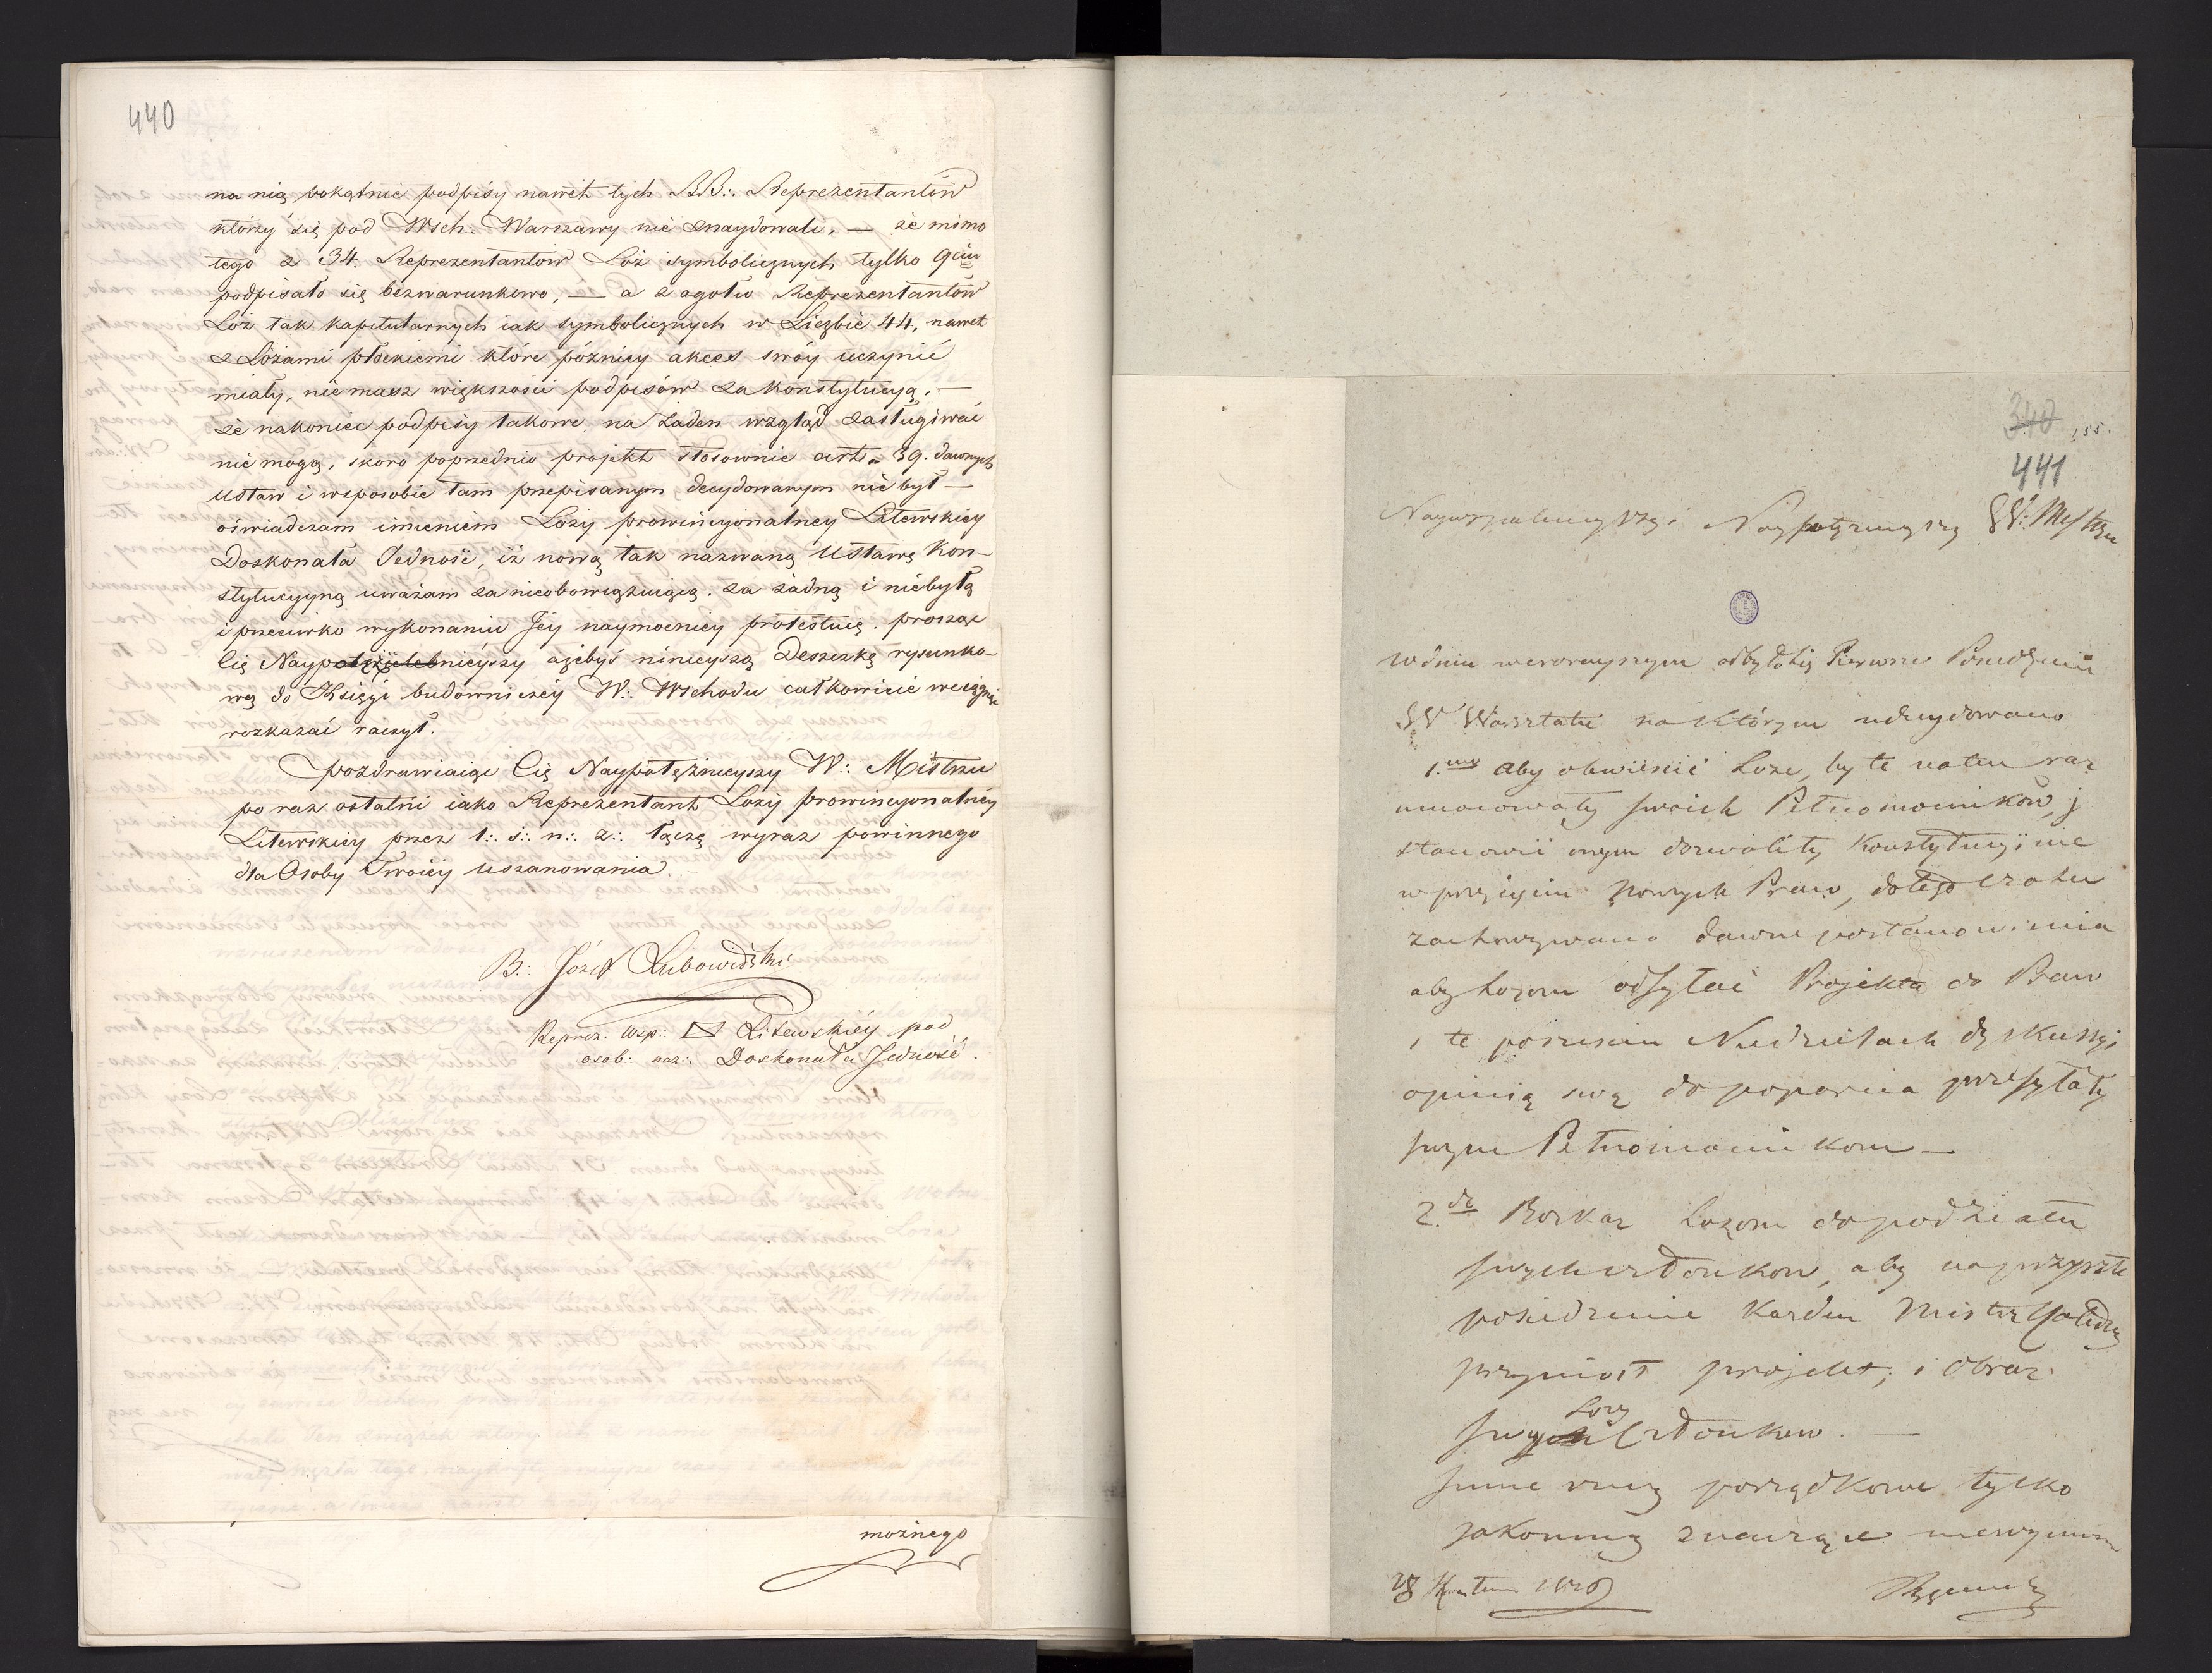 440
na nią pokątnie podpisy nawet tych BB:. Reprezentantów
którzy się pod Wsch: Warszawy nie znaydowali, — że mimo
tego z 34. Reprezentantów Lóż symbolicznych tylko 9ciu
podpisało się bezwarunkowo, — a z ogołu Reprezentantów
Lóż tak kapitularnych iak symbolicznych w Liczbie 44, nawet
z Lożami płockiemi które pózniey akces swóy uczynić
miały, nie masz większości podpisów za konstytucyą. —
że nakoniec podpisy takowe, na żaden wzgląd zasługiwać
nie mogą, skoro poprzednio projekt stosownie art. 39. dawnych
Ustaw i wsposobie tam przepisanym, decydowanym nie był —
oświadczam imieniem Loży prowincyonalney Litewskiey
Doskonała Jedność, iż nową tak nazwaną Ustawę Kon-
stytucyyną uważam za nieobowiązuiącą, za żadną i niebyłą
i przeciwko wykonaniu Jey naymocniey protestuię. prosząc
Cię Nayp nieyszy ażebyś ninieyszą Deszczkę rysunko-
wą do Księgi budowniczey W:. Wschodu całkowicie wciągnąć
rozkazać raczył.
pozdrawiaiąc Cię Naypotężnieyszy W:. Mistrzu
po raz ostatni iako Reprezentant Loży prowincyonalney
Litewskiey przez l:. ś:. n:. z:. łączę wyraz powinnego
dla Osoby Twoiey uszanowania.
B:. Józef Lubowidzki
Reprez. Wsp:. Litewskiéy pod
osob:. naz:. Doskonała Jedność.
możnego
340
155.
441
Nayws i Naypotężnieyszy W:. Mistrzu
W dniu wczorayszym odbyło się Pierwsze Posiedzenie
W Warsztatu na którym zdecydowano
1.mo aby obwieścić Loże, by te na ten raz
umocowały swoich Pełnomocników, i
stanowić onym dozwoliły Konstytucyi nie
w przyięciu Nowych Praw, do tego czasu
zachowywano dawne postanowienia
aby Lożom odsyłać Projekta do Praw
i te po Niedzielach dyskussyi
opinią swą do poparcia przesyłały
swym Pełnomocnikom —
2.do Rozkaz Lożom do podziału
swych członków, aby na przyszłe
posiedzenie każden Mistrz Katedry
przyniósł projekt, i Obraz
Loży
swych Członków. —
porządkowe tylko
znaczące
28 Kwietnia 1820